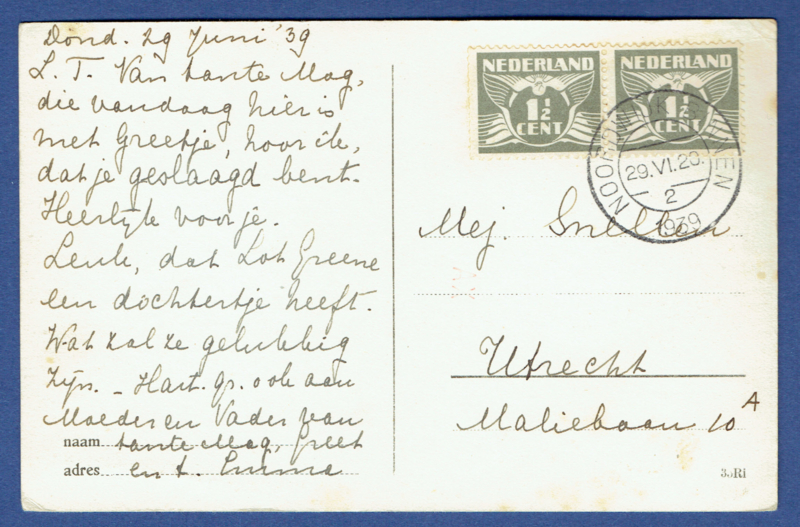 Dond. 29 Juni '39
L. T. Van tante Mag,
die vandaag hier is
met Greetje, hoor ik,
dat je geslaagd bent.
Heerlijk voor je.
Leuk, dat Lot Greene
een dochtertje heeft.
Wat zal ze gelukkig
zijn. – Hart. gr. ook aan
Moeder en Vader van
naam tante Mag, Greet
adres en t. Emma
NEDERLAND
1½
CENT
NEDERLAND
1½
CENT
29.VI.20.
2
1939
Mej. Snellen
Utrecht
Maliebaan 10 A